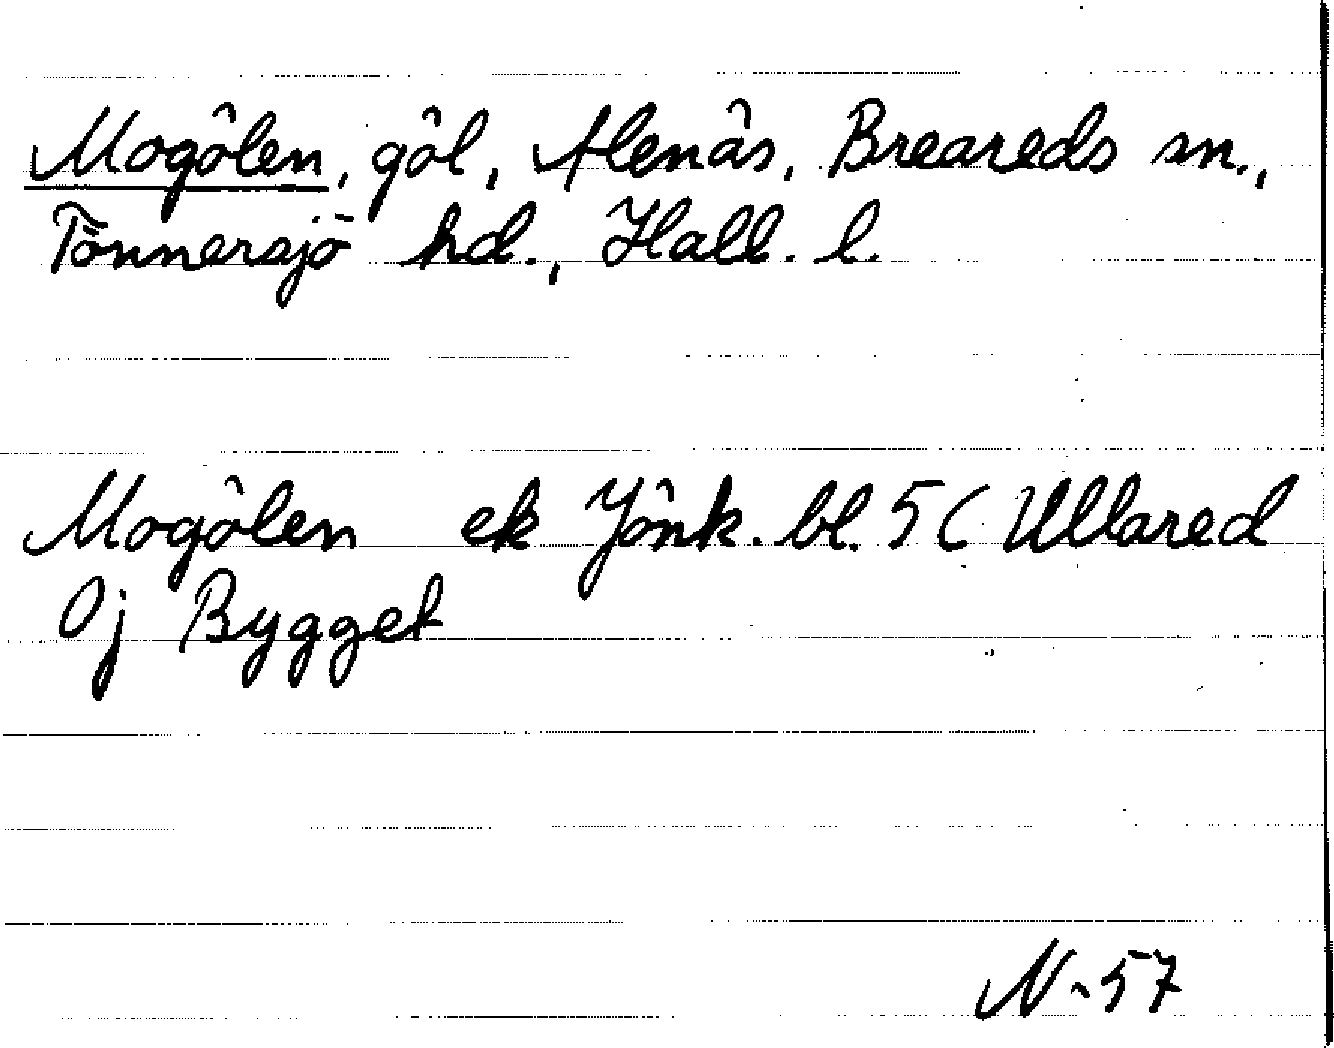 Mogölen, göl, Alenäs, Breareds sn.,
Tönnersjö hd., Hall. l.
Mogölen ek Jönk. bl. 5 ( Ullared
Oj Bygget
N-57